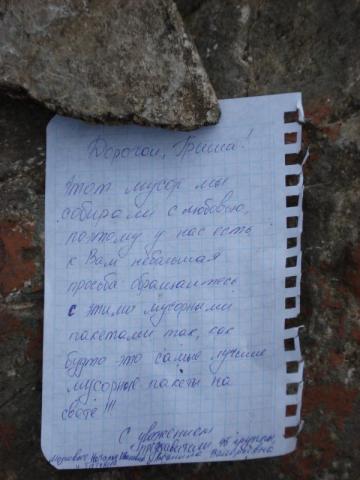 Дорогой, Гриша!
Этот мусор мы
собирали с любовью,
поэтому у нас есть
к Вам небольшая
просьба обращайтесь
с этими мусорными
пакетами так, как
будто это самые лучшие
мусорные пакеты на
свете!!!
С уважением